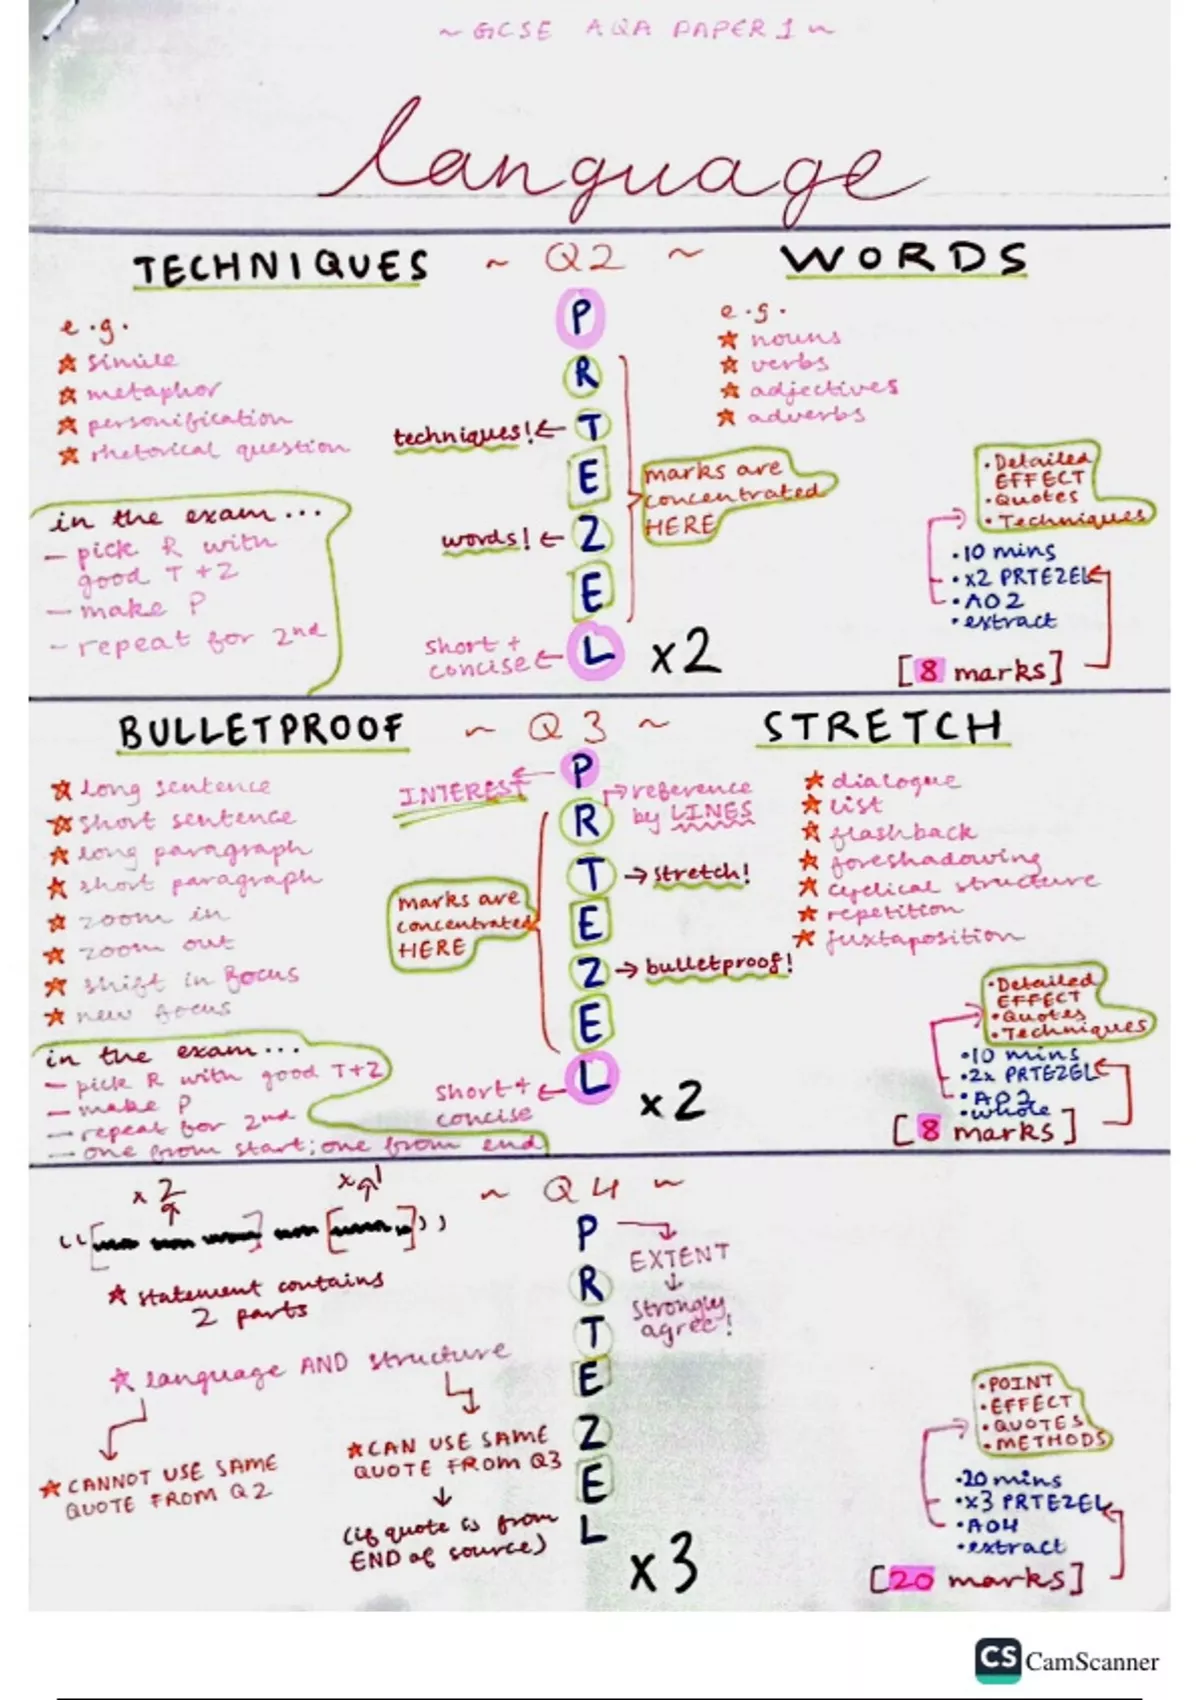 ~ GCSE AQA PAPER 1 ~
language
TECHNIQUES
~ Q2 ~
WORDS
e.g.
☆ simile
☆ metaphor
☆ personification
☆ rhetorical question
in the exam...
- pick R with
good T + Z
- make P
- repeat for 2nd
P
R
T
E
Z
E
L
techniques! ←
words! ←
short +
concise ←
x2
marks are
concentrated
HERE
e.g.
☆ nouns
☆ verbs
☆ adjectives
☆ adverbs
• Detailed
EFFECT
• Quotes
• Techniques
• 10 mins
• x2 PRTEZEL
• AO2
• extract
[8 marks]
BULLETPROOF
~ Q3 ~
STRETCH
☆ long sentence
☆ short sentence
☆ long paragraph
☆ short paragraph
☆ zoom in
☆ zoom out
☆ shift in focus
☆ new focus
in the exam...
- pick R with good T+Z
- make P
- repeat for 2nd
- one from start; one from end
INTEREST ←
P
R
T
E
Z
E
L
→ reference
by LINES
→ stretch!
→ bulletproof!
marks are
concentrated
HERE
short +
concise ←
x2
☆ dialogue
☆ list
☆ flashback
☆ foreshadowing
☆ cyclical structure
☆ repetition
☆ juxtaposition
• Detailed
EFFECT
• Quotes
• Techniques
• 10 mins
• 2x PRTEZEL
• AO2
• whole
[8 marks]
~ Q4 ~
x 2
x 1
☆ statement contains
2 parts
☆ language AND structure
☆ CANNOT USE SAME
QUOTE FROM Q2
☆ CAN USE SAME
QUOTE FROM Q3
↓
(if quote is from
END of source)
P
R
T
E
Z
E
L
→
EXTENT
↓
strongly
agree!
x3
• POINT
• EFFECT
• QUOTES
• METHODS
• 20 mins
• x3 PRTEZEL
• AO4
• extract
[20 marks]
CS CamScanner